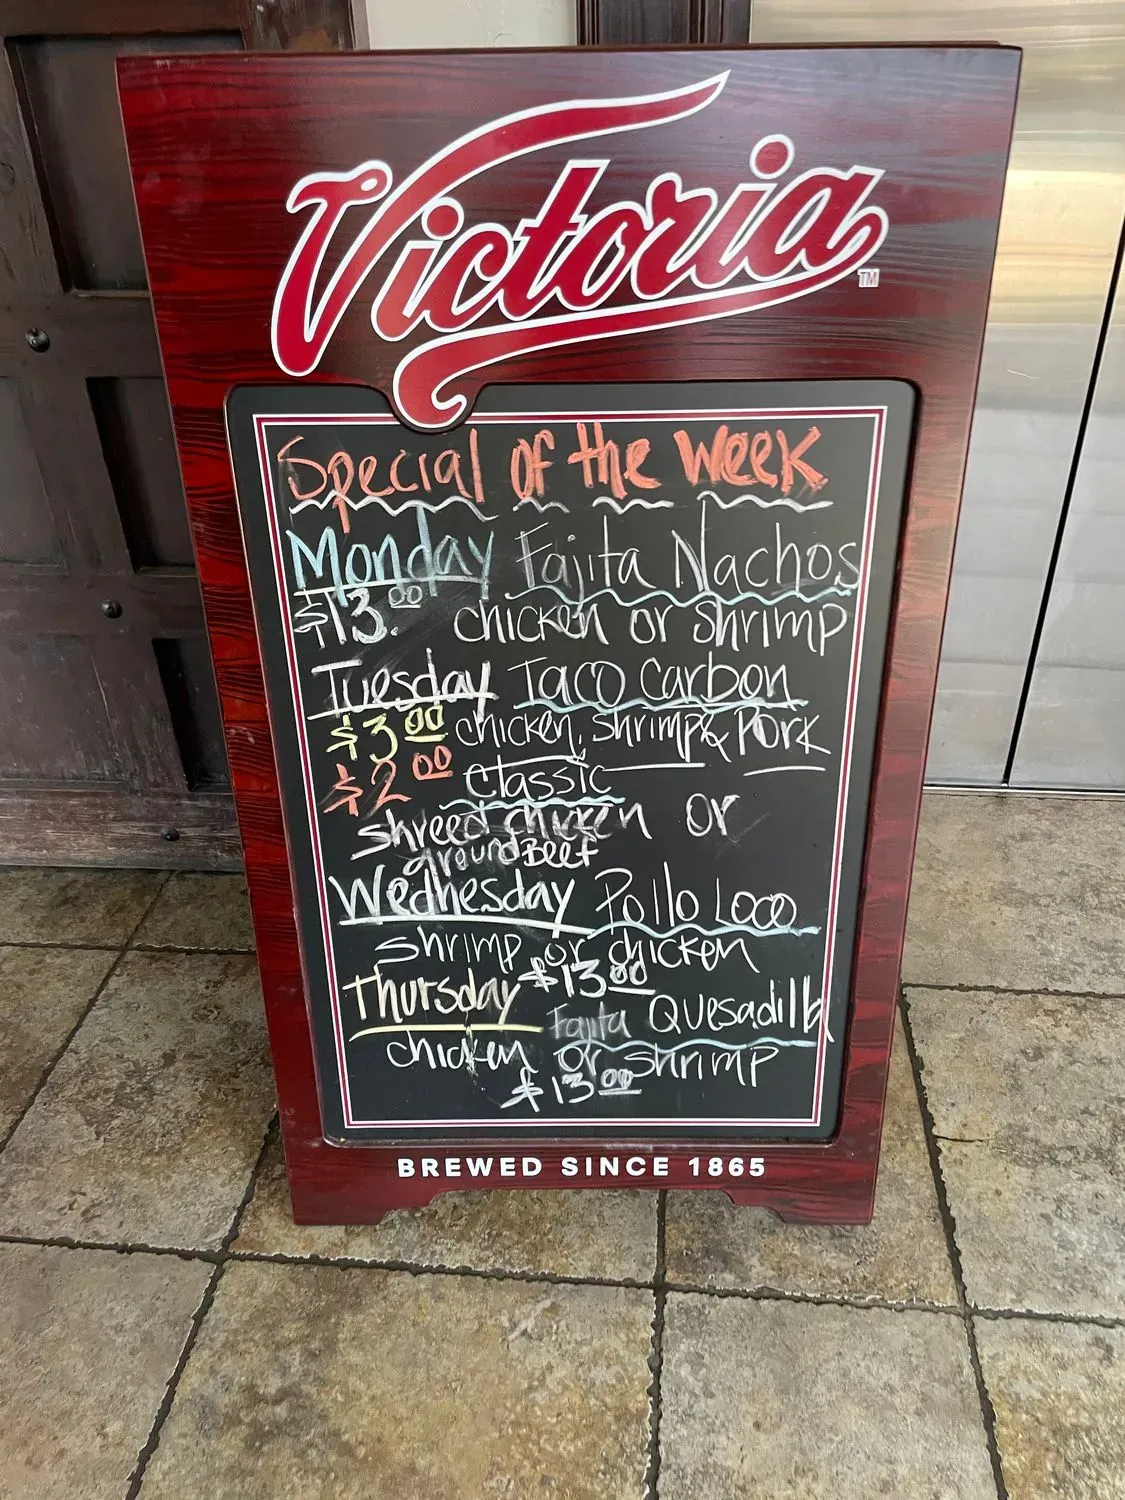 Victoria TM
Special of the Week
Monday Fajita Nachos
$13.00 chicken or shrimp
Tuesday Taco Carbon
$3.00 chicken, shrimp & Pork
$2.00 classic
shreed chicken or
ground Beef
Wednesday Pollo Loco
shrimp or chicken
$13.00
Thursday Fajita Quesadilla
chicken or shrimp
$13.00
BREWED SINCE 1865